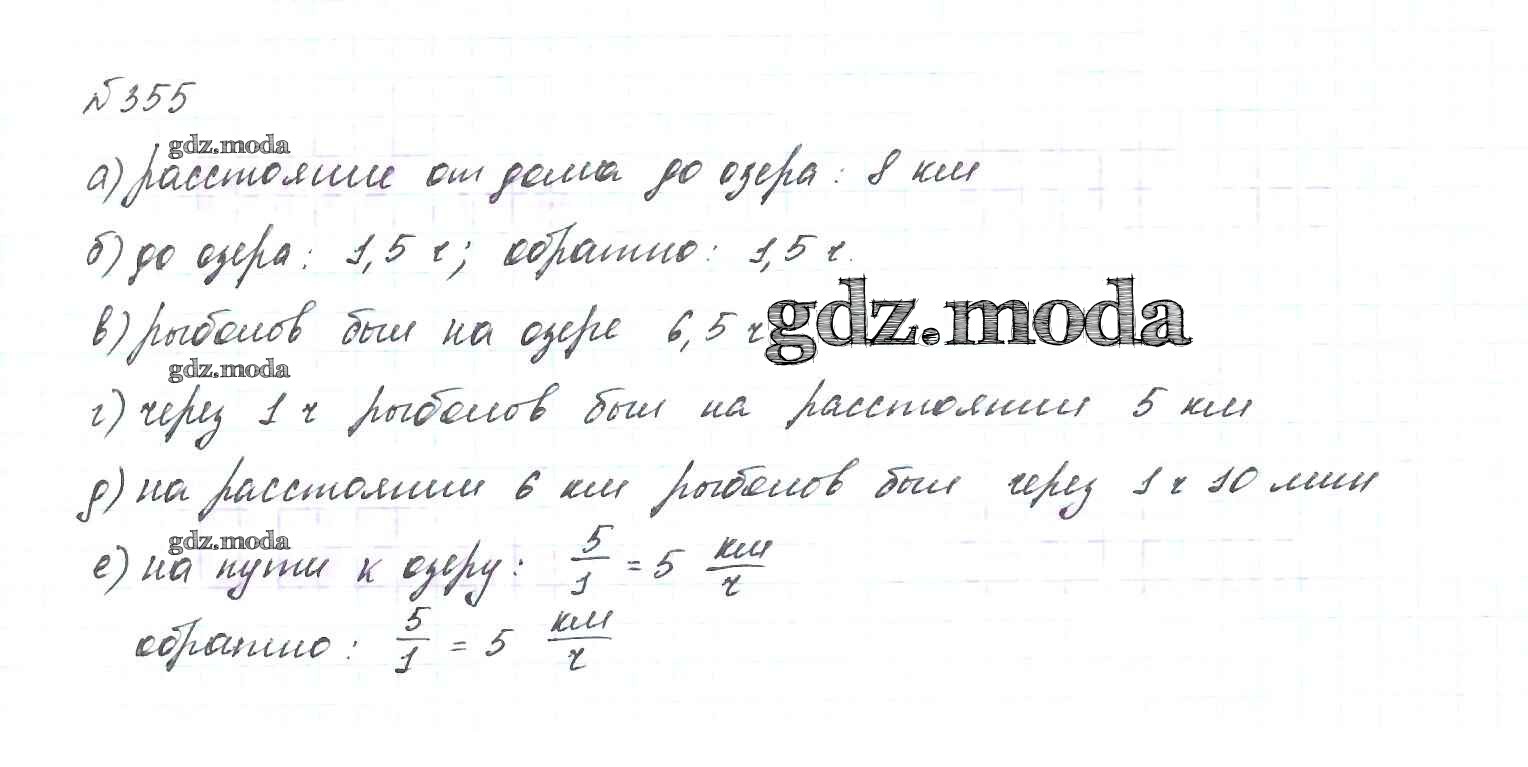 №355
gdz.moda
а) расстояние от дома до озера: 8 км
б) до озера: 1,5 ч; обратно: 1,5 ч.
в) рыболов был на озере 6,5 ч
gdz.moda
gdz.moda
г) через 1 ч рыболов был на расстоянии 5 км
д) на расстоянии 6 км рыболов был через 1 ч 10 мин
gdz.moda
е) на пути к озеру: 5/1 = 5 км/ч
обратно: 5/1 = 5 км/ч